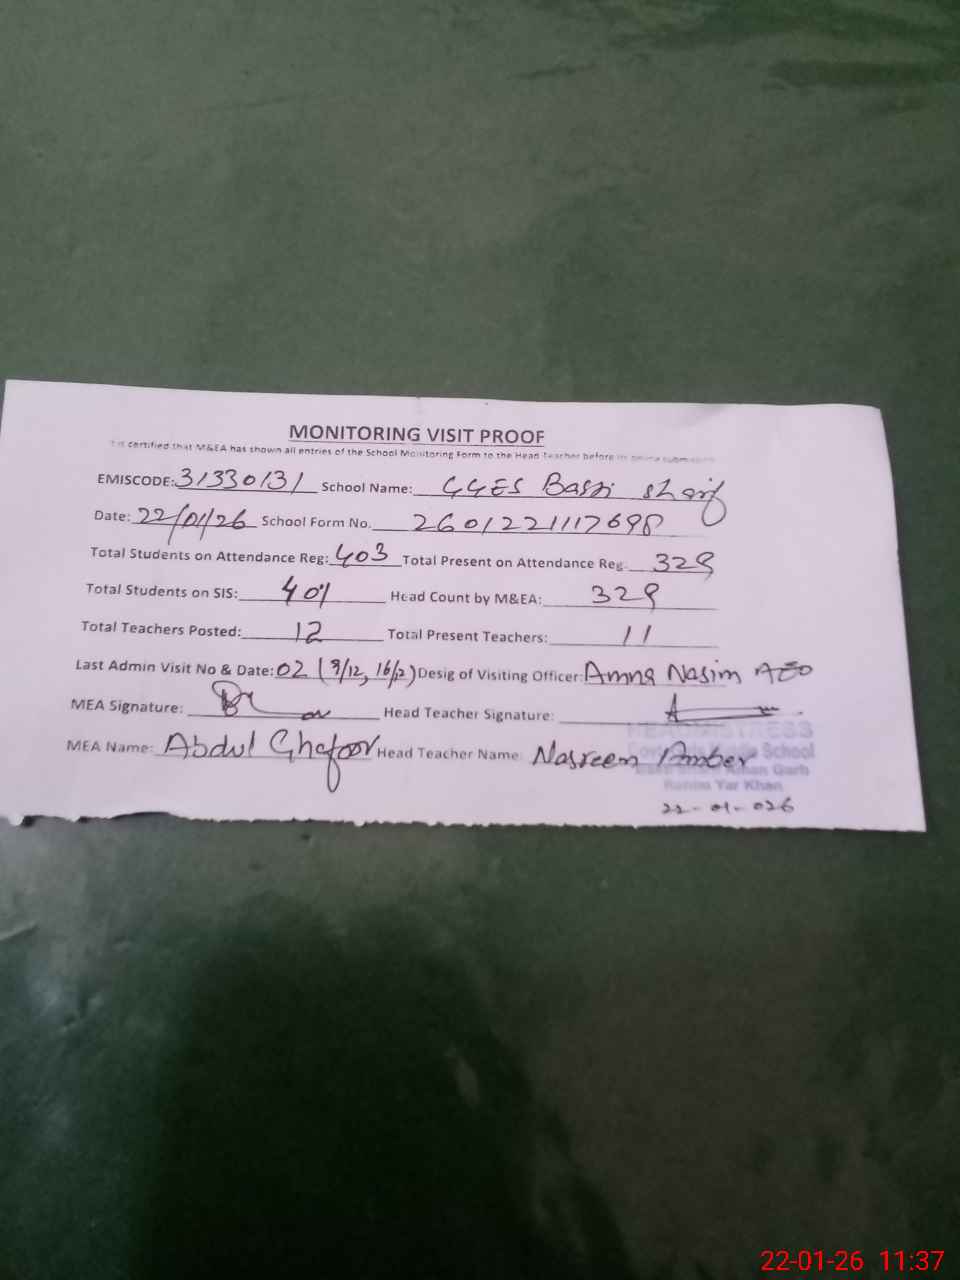 MONITORING VISIT PROOF
It is certified that M&EA has shown all entries of the School Monitoring Form to the Head Teacher before its online submission
EMISCODE: 31330131 School Name: GGES Basti sharif
Date: 22/01/26 School Form No. 2601221117698
Total Students on Attendance Reg: 403 Total Present on Attendance Reg. 329
Total Students on SIS: 401 Head Count by M&EA: 329
Total Teachers Posted: 12 Total Present Teachers: 11
Last Admin Visit No & Date: 02 (9/12, 16/12) Desig of Visiting Officer: Amna Nasim AEO
MEA Signature: Head Teacher Signature:
HEADMISTRESS
MEA Name: Abdul Ghafoor Head Teacher Name: Nasreem Amber
School
Khan Garh
Yar Khan
22-01-026
22-01-26 11:37